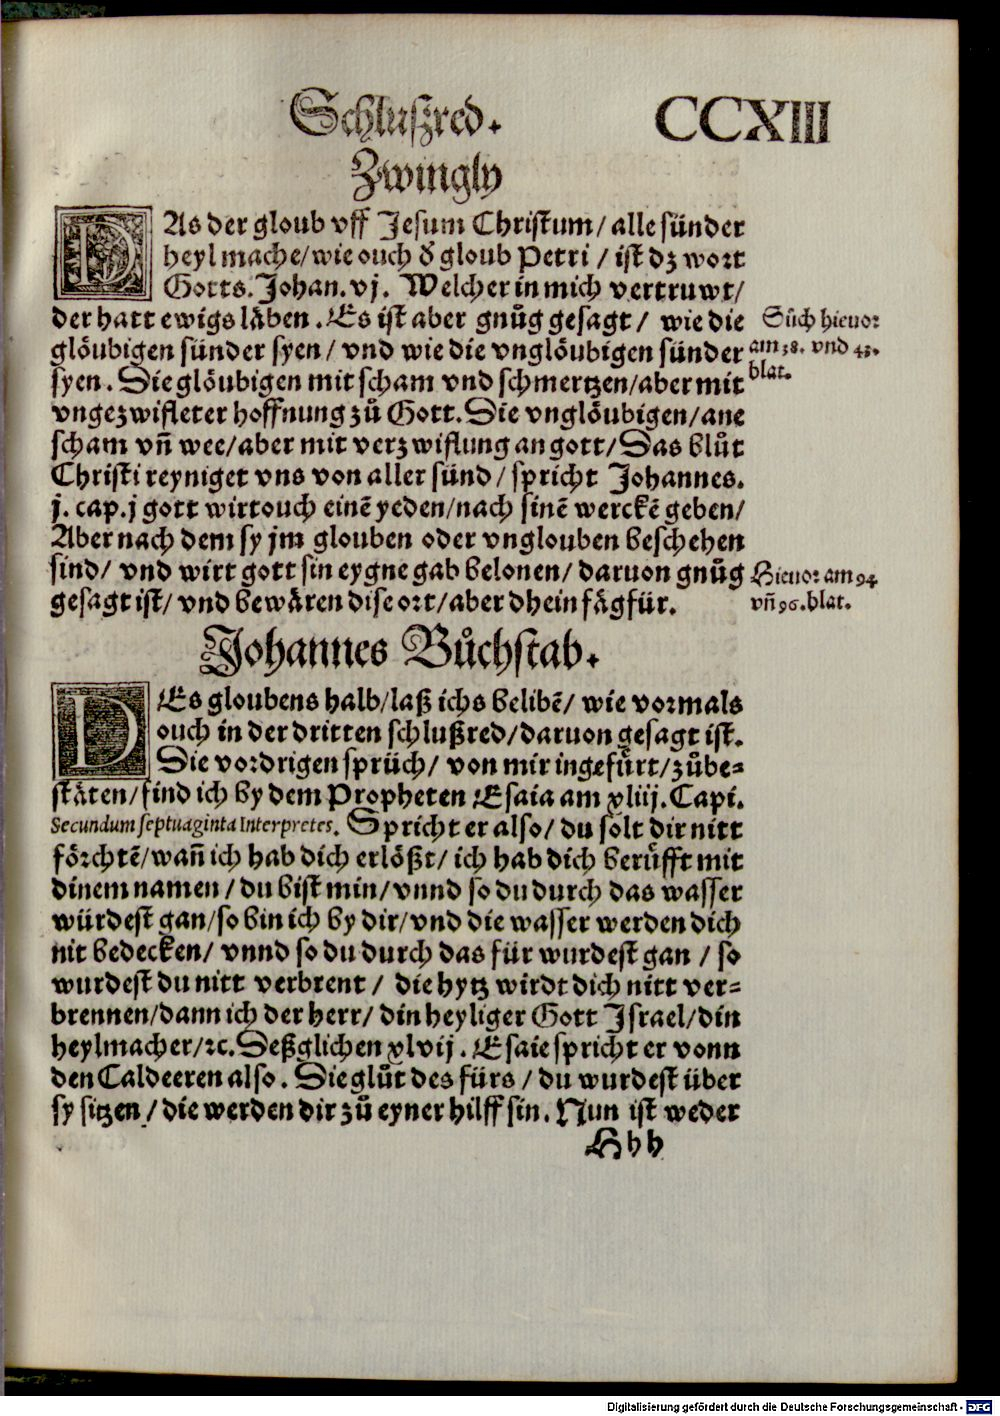 Schlußred.
CCXIII
Zwingly
DAs der gloub vff Jesum Christum/ alle sünder
heyl mache/ wie ouch d̕ gloub Petri / ist dz wort
Gotts. Johan. vj. Welcher in mich vertruwt/
der hatt ewigs läben. Es ist aber gnůg gesagt/ wie die
glöubigen sünder syen/ vnd wie die vnglöubigen sünder
syen. Die glöubigen mit scham vnd schmertzen/ aber mit
vngezwifleter hoffnung zů Gott. Die vnglöubigen/ ane
scham vñ wee/ aber mit verzwiflung an gott/ Das blůt
Christi reyniget vns von aller sünd/ spricht Johannes.
j. cap. j gott wirt ouch einẽ yeden/ nach sinẽ werckẽ geben/
Aber nach dem sy jm glouben oder vnglouben beschehen
sind/ vnd wirt gott sin eygne gab belonen/ daruon gnůg
gesagt ist/ vnd bewären dise ort/ aber dhein fägfür.
Sůch hieuor
am 38. vnd 43.
blat.
Hieuor am 94
vñ 96. blat.
Johannes Bůchstab.
DEs gloubens halb/ laß ichs belibẽ/ wie vormals
ouch in der dritten schlußred/ daruon gesagt ist.
Die vordrigen sprüch/ von mir ingefürt/ zůbe-
stäten/ find ich by dem Propheten Esaia am xliij. Capi.
Secundum septuaginta Interpretes. Spricht er also/ du solt dir nitt
förchtẽ/ wañ ich hab dich erlößt/ ich hab dich berüfft mit
dinem namen/ du bist min/ vnnd so du durch das wasser
würdest gan/ so bin ich by dir/ vnd die wasser werden dich
nit bedecken/ vnnd so du durch das für wurdest gan / so
wurdest du nitt verbrent / die hytz wirdt dich nitt ver-
brennen/ dann ich der herr/ din heyliger Gott Israel/ din
heylmacher/ ꝛc. Deßglichen xlvij. Esaie spricht er vonn
den Caldeeren also. Die glůt des fürs / du wurdest über
sy sitzen/ die werden dir zů eyner hilff sin. Nun ist weder
Hhh
Digitalisierung gefördert durch die Deutsche Forschungsgemeinschaft - DFG